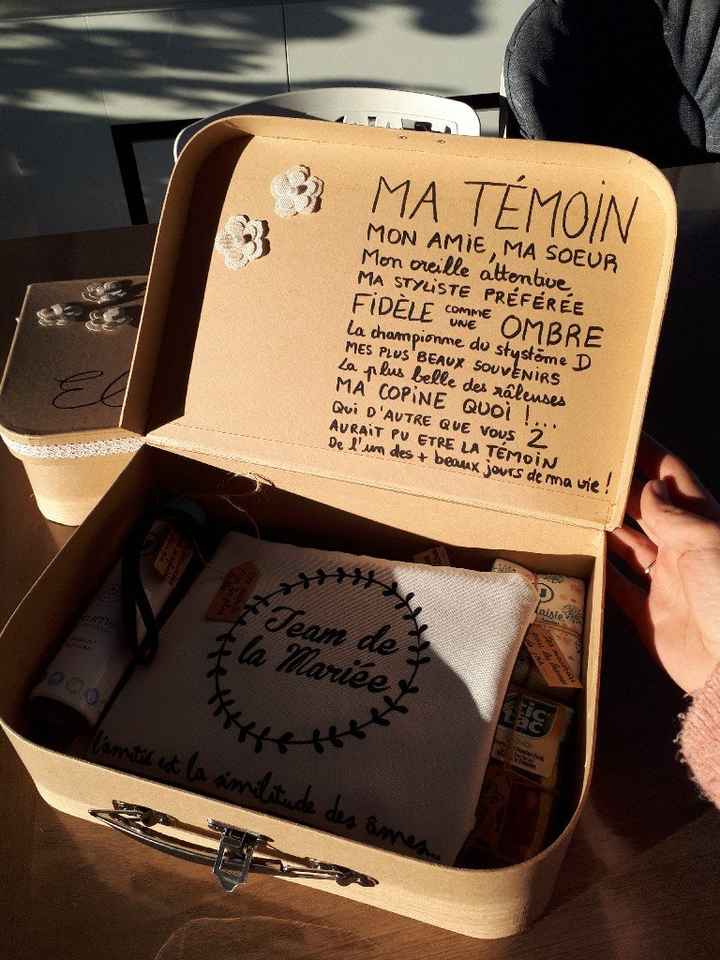 MA TÉMOIN
MON AMIE, MA SOEUR
Mon oreille attentive
MA STYLISTE PRÉFÉRÉE
FIDÈLE COMME UNE OMBRE
La championne du stystème D
MES PLUS BEAUX SOUVENIRS
La plus belle des râleuses
MA COPINE QUOI !...
QUI D'AUTRE QUE VOUS 2
AURAIT PU ETRE LA TÉMOIN
De l'un des + beaux jours de ma vie !
El
Team de
la Mariée
l'amitié est la similitude des âmes...
tic
tac